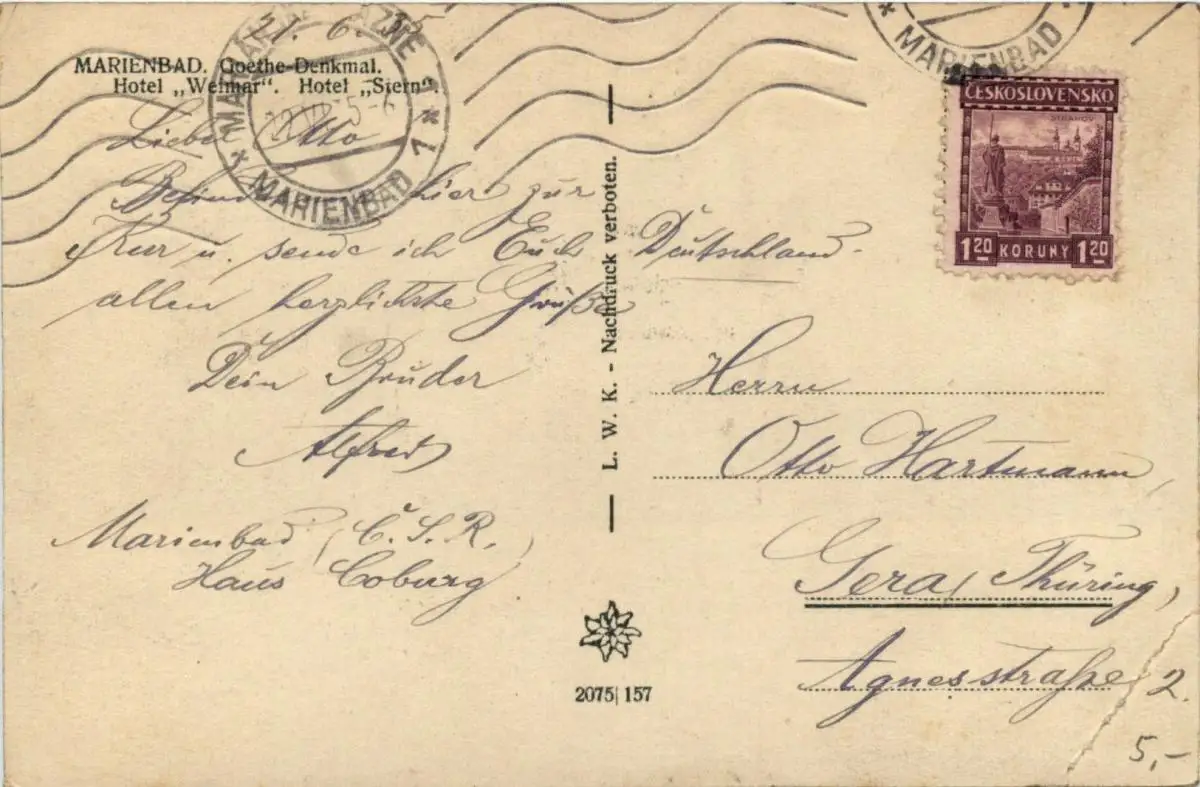 21. 6. 35
MARIENBAD. Goethe-Denkmal.
Hotel „Weimar“. Hotel „Stern“.
MARIÁNSKÉ LÁZNĚ 1
* MARIENBAD 1 *
Lieber Otto
hier zur
Kur u. sende ich Euch
allen herzlichste Grüße
Dein Bruder
Alfred
Marienbad, Č.S.R.,
Haus Coburg
L. W. K. - Nachdruck verboten.
2075|157
* MARIENBAD
ČESKOSLOVENSKO
STRAHOV
1 20 KORUNY 1 20
Deutschland.
Herrn
Otto Hartmann,
Gera, Thüring,
Agnesstraße 2.
5,-